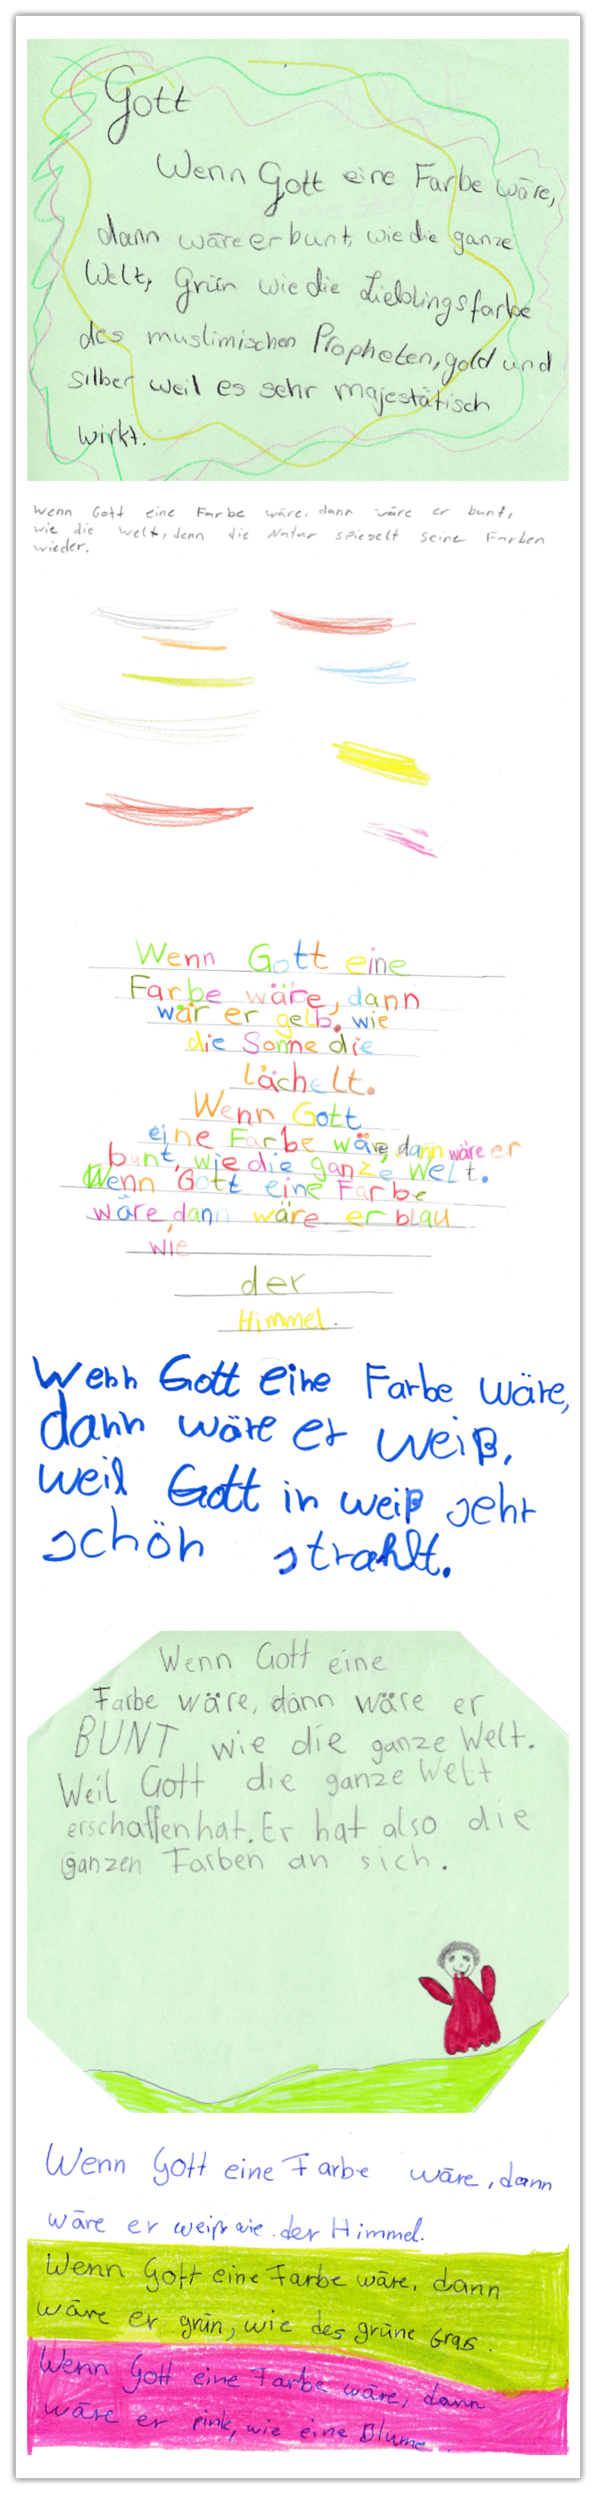 Gott
Wenn Gott eine Farbe wäre,
dann wäre er bunt, wie die ganze
Welt, Grün wie die Lieblingsfarbe
des muslimischen Propheten, gold und
silber weil es sehr majestätisch
wirkt.
Wenn Gott eine Farbe wäre, dann wäre er bunt,
wie die Welt, denn die Natur spiegelt seine Farben
wieder.
Wenn Gott eine
Farbe wäre, dann
wär er gelb, wie
die Sonne die
lächelt.
Wenn Gott
eine Farbe wäre, dann wäre er
bunt, wie die ganze Welt.
Wenn Gott eine Farbe
wäre, dann wäre er blau
wie
der
Himmel.
Wenn Gott eine Farbe wäre,
dann wäre er weiß,
weil Gott in weiß sehr
schön strahlt.
Wenn Gott eine
Farbe wäre, dann wäre er
BUNT wie die ganze Welt.
Weil Gott die ganze Welt
erschaffen hat. Er hat also die
ganzen Farben an sich.
Wenn Gott eine Farbe wäre, dann
wäre er weiß wie der Himmel.
Wenn Gott eine Farbe wäre, dann
wäre er grün, wie des grüne Gras.
Wenn Gott eine Farbe wäre, dann
wäre er pink, wie eine Blume.